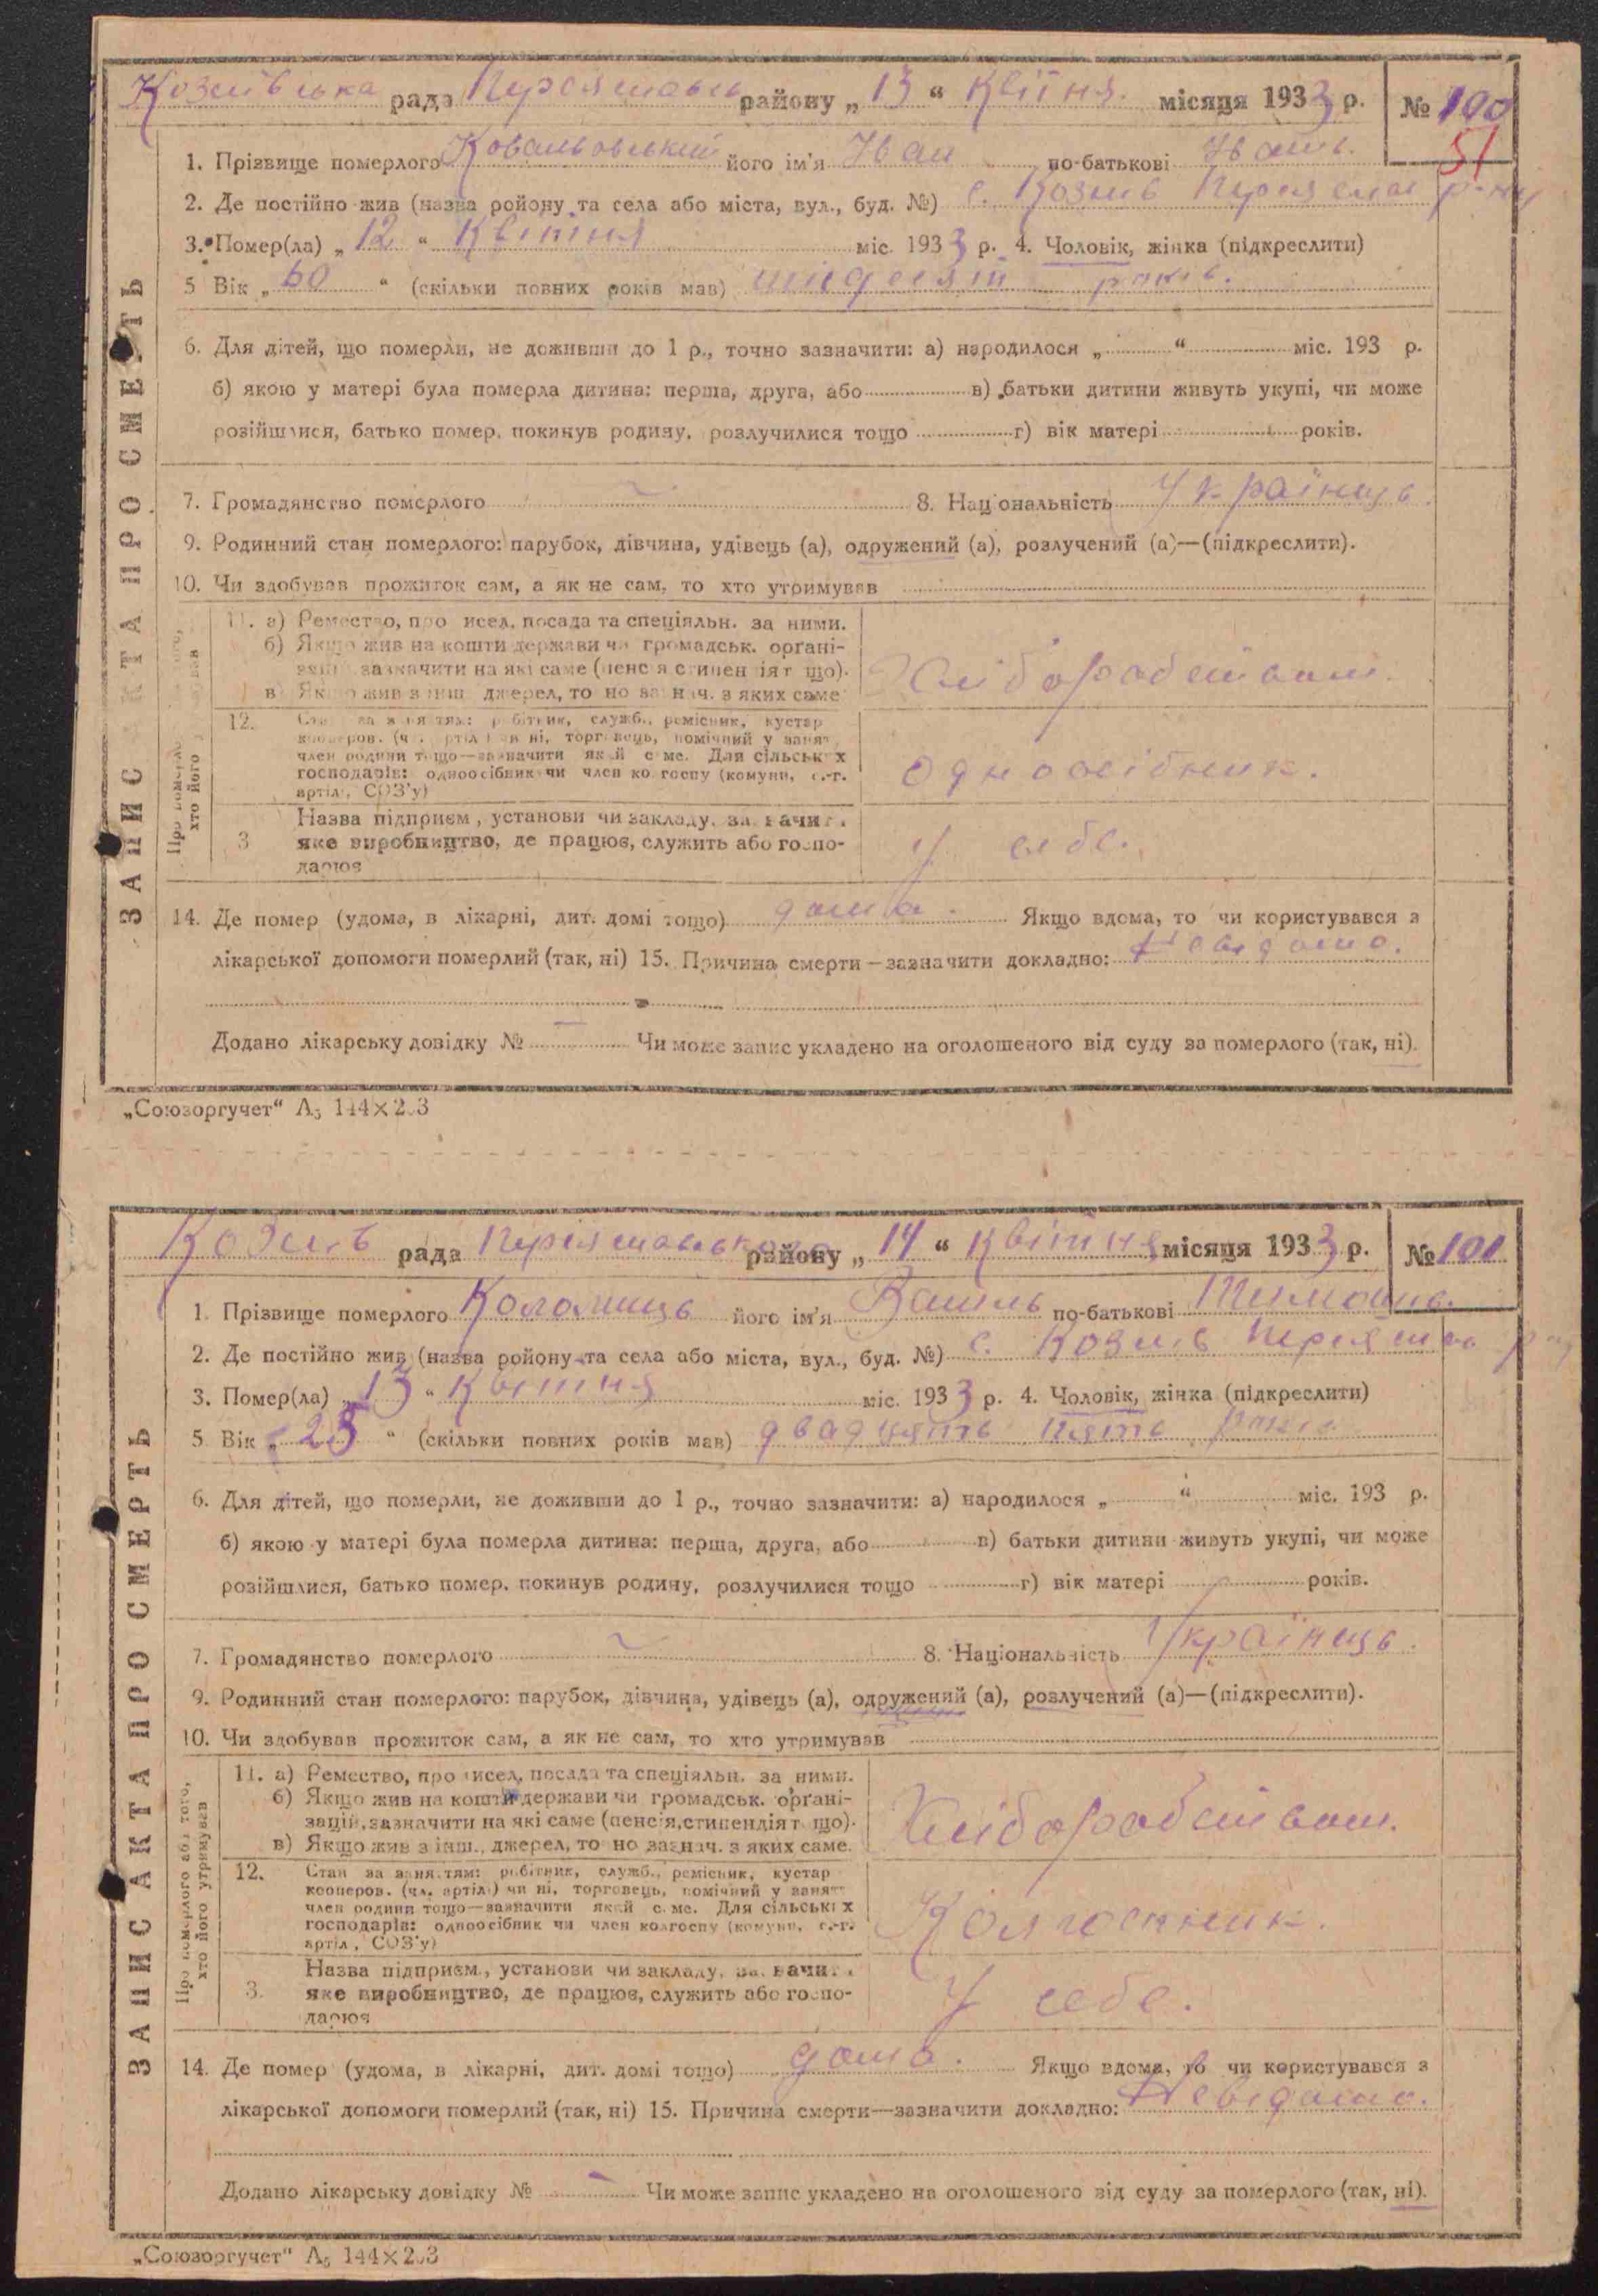 Козлівська рада Переяславськ району „ 13 “ Квітня місяця 1933 р. № 100
51
1. Прізвище померлого Ковальовський його ім'я Іван по-батькові Іванов.
2. Де постійно жив (назва ройону та села або міста, вул., буд. №) с. Козлів Переяслав р-ну
3. Помер(ла) „ 12 “ Квітня міс. 1933 р. 4. Чоловік, жінка (підкреслити)
5 Вік „ 60 “ (скільки повних років мав) шідесят років.
6. Для дітей, що померли, не доживши до 1 р., точно зазначити: а) народилося „ “ міс. 193 р.
б) якою у матері була померла дитина: перша, друга, або в) батьки дитини живуть укупі, чи може
розійшлися, батько помер, покинув родину, розлучилися тощо г) вік матері років.
7. Громадянство померлого 8. Національність Українець.
9. Родинний стан померлого: парубок, дівчина, удівець (а), одружений (а), розлучений (а)—(підкреслити).
10. Чи здобував прожиток сам, а як не сам, то хто утримував
11. а) Ремество, про исел, посада та спеціяльн. за ними.
б) Якщо жив на кошти держави чи громадськ. орґані-
зацій, зазначити на які саме (пенсія стипендія т що).
в) Якщо жив з інш. джерел, то но зазнач. з яких саме
Хліборобством.
12. Стан за занятям: робітник, служб., ремісник, кустар
кооперов. (чл. артілі) чи ні, торговець, помічний у занят
член родини тощо—зазначити який саме. Для сільських
господарів: одноосібник чи член колгоспу (комуни, с.-г.
артіл., СОЗ'у)
Одноосібник.
3 Назва підприєм., установи чи закладу, зазначити
яке виробництво, де працює, служить або госпо-
дарює
У себе.
14. Де помер (удома, в лікарні, дит. домі тощо) дома. Якщо вдома, то чи користувався з
лікарської допомоги померлий (так, ні) 15. Причина смерти—зазначити докладно: Невідомо.
Додано лікарську довідку № — Чи може запис укладено на оголошеного від суду за померлого (так, ні).
ЗАПИС АКТА ПРО СМЕРТЬ
„Союзоргучет“ А5 144×203
Козлів рада Переяславського району „ 14 “ Квітня місяця 1933 р. № 101
1. Прізвище померлого Коломиець його ім'я Василь по-батькові Тимошов.
2. Де постійно жив (назва ройону та села або міста, вул., буд. №) с. Козлів Переяслав р-ну
3. Помер(ла) „ 13 “ Квітня міс. 1933 р. 4. Чоловік, жінка (підкреслити)
5 Вік „ 25 “ (скільки повних років мав) двадцять пять років
6. Для дітей, що померли, не доживши до 1 р., точно зазначити: а) народилося „ “ міс. 193 р.
б) якою у матері була померла дитина: перша, друга, або в) батьки дитини живуть укупі, чи може
розійшлися, батько помер, покинув родину, розлучилися тощо г) вік матері років.
7. Громадянство померлого 8. Національність Українець.
9. Родинний стан померлого: парубок, дівчина, удівець (а), одружений (а), розлучений (а)—(підкреслити).
10. Чи здобував прожиток сам, а як не сам, то хто утримував
Про померлого або того,
хто його утримував
11. а) Ремество, про исел, посада та спеціяльн. за ними.
б) Якщо жив на кошти держави чи громадськ. орґані-
зацій, зазначити на які саме (пенсія, стипендія т що).
в) Якщо жив з інш., джерел, то но зазнач. з яких саме.
Хліборобством.
12. Стан за занятям: робітник, служб., ремісник, кустар
кооперов. (чл. артілі) чи ні, торговець, помічний у занят
член родини тощо—зазначити який саме. Для сільських
господарів: одноосібник чи член колгоспу (комуни, с.-г.
артіл., СОЗ'у)
Колгоспник.
3. Назва підприєм., установи чи закладу, зазначити
яке виробництво, де працює, служить або госпо-
дарює
У себе.
14. Де помер (удома, в лікарні, дит. домі тощо) дома. Якщо вдома, то чи користувався з
лікарської допомоги померлий (так, ні) 15. Причина смерти—зазначити докладно: Невідомо.
Додано лікарську довідку № — Чи може запис укладено на оголошеного від суду за померлого (так, ні).
ЗАПИС АКТА ПРО СМЕРТЬ
„Союзоргучет“ А5 144×203